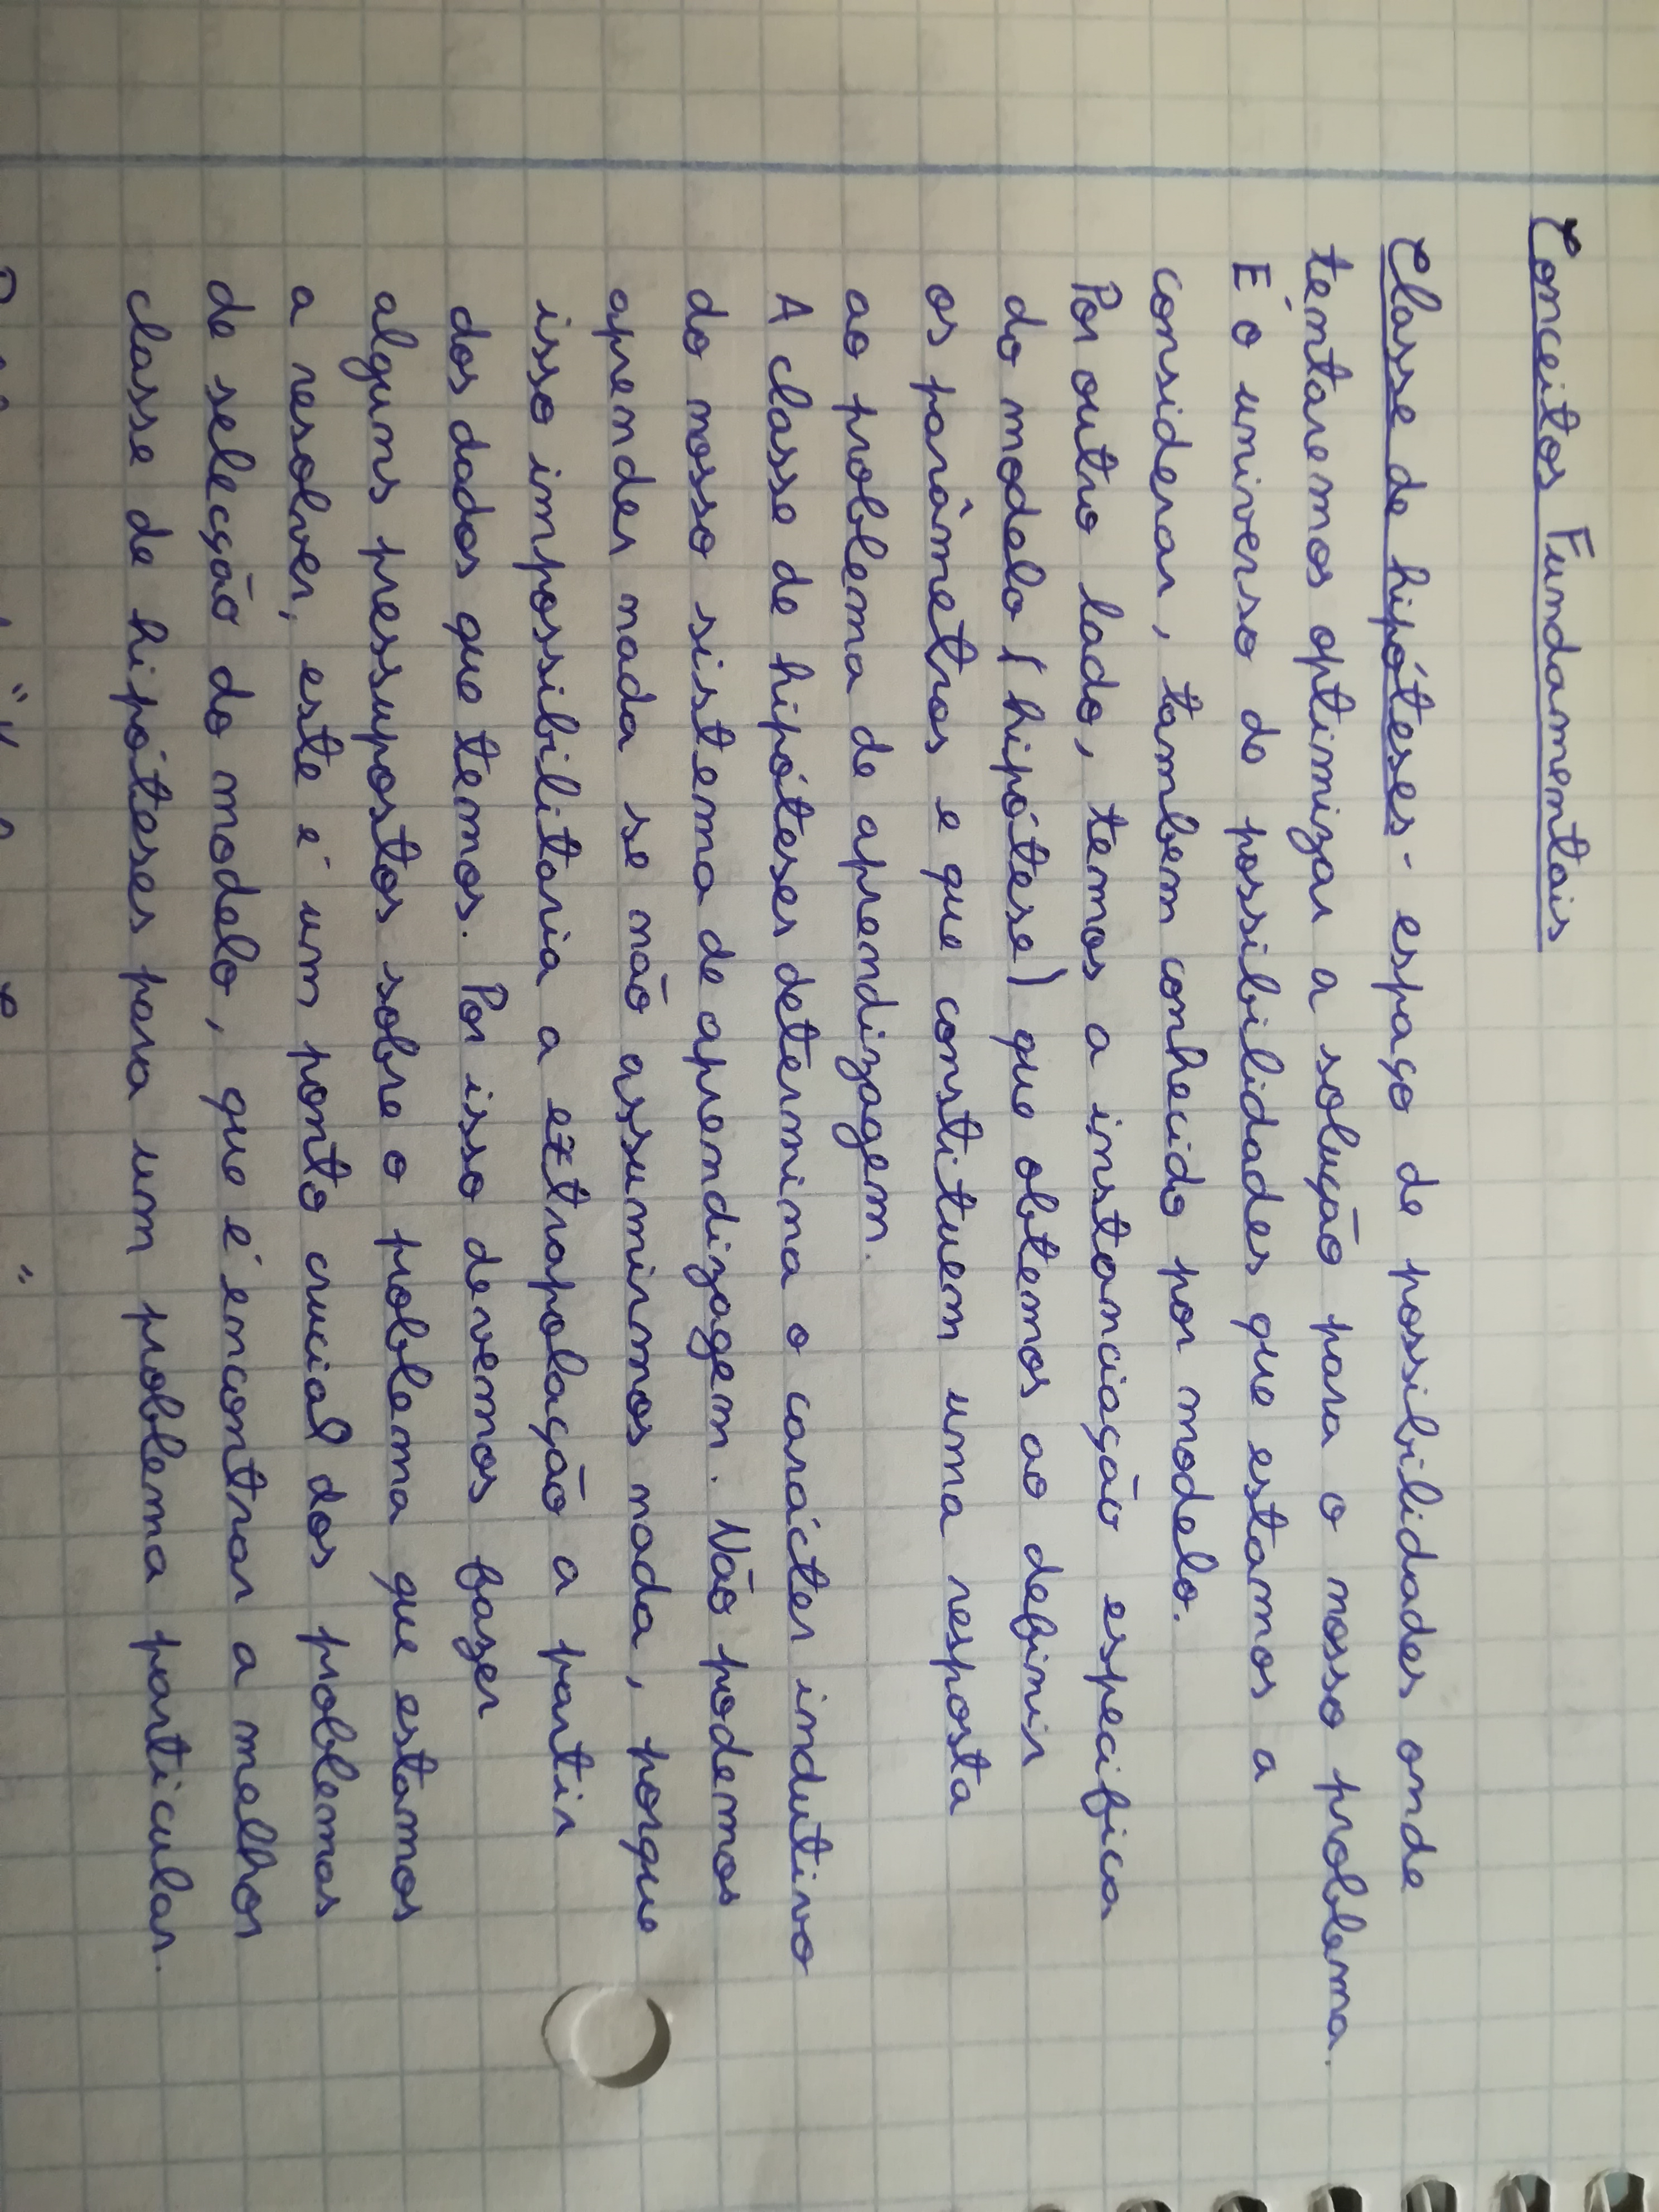 Conceitos Fundamentais
Classe de hipóteses - espaço de possibilidades onde
tentaremos optimizar a solução para o nosso problema.
É o universo de possibilidades que estamos a
considerar, tambem conhecido por modelo.
Por outro lado, temos a instanciação especifica
do modelo (hipótese) que obtemos ao definir
os parâmetros e que constituem uma resposta
ao problema de aprendizagem.
A classe de hipóteses determina o carácter indutivo
do nosso sistema de aprendizagem. Não podemos
aprender nada se não assumirmos nada, porque
isso impossibilitaria a extrapolação a partir
dos dados que temos. Por isso devemos fazer
alguns pressupostos sobre o problema que estamos
a resolver, este é um ponto crucial dos problemas
de seleção do modelo, que é encontrar a melhor
classe de hipóteses para um problema particular.